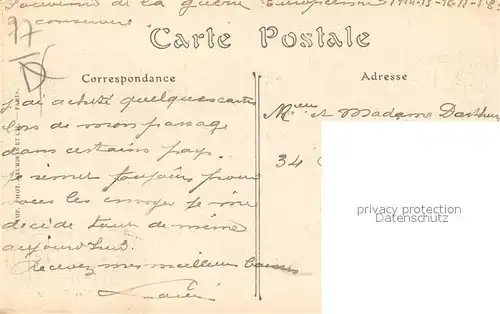 Souvenir de la guerre Européenne 1914-15-16-17-18
conserver
77
D
Carte Postale
Correspondance
Adresse
j'ai acheté quelques cartes
lors de mon passage
dans certains pays.
Je remet toujours pour
vous les envoyer je me
décide tout de même
aujourd'hui.
Recevez mes meilleurs baisers
Mr et Madame
34
privacy protection
www.oldthing.com